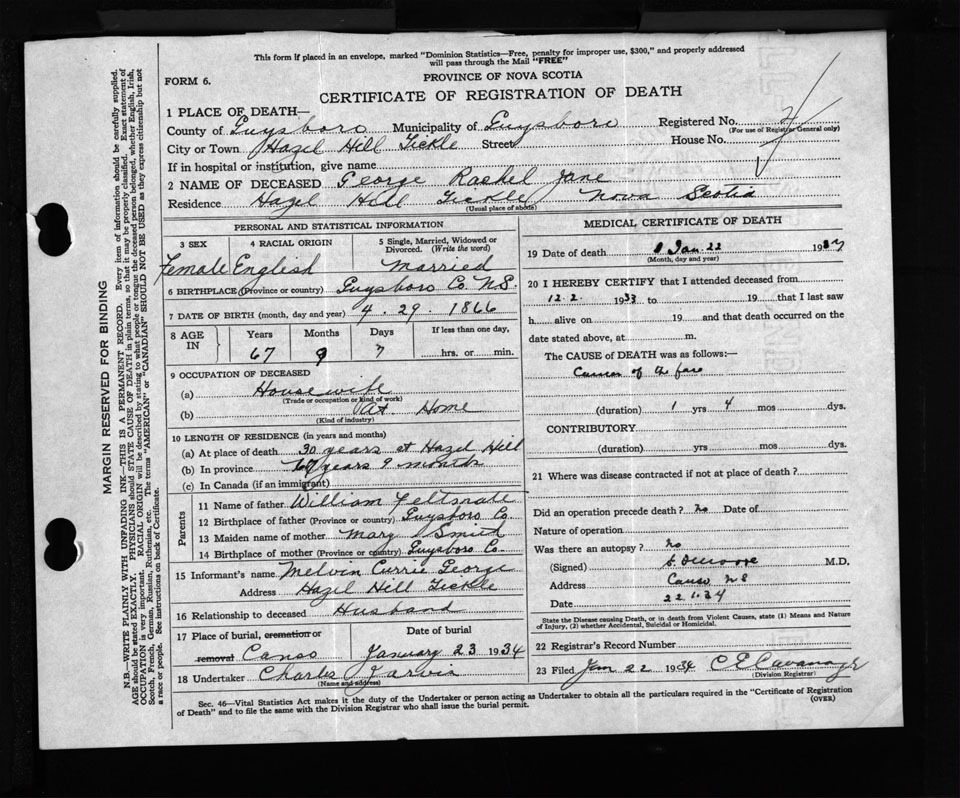 This form if placed in an envelope, marked "Dominion Statistics—Free, penalty for improper use, $300," and properly addressed
will pass through the Mail "FREE"
FORM 6.
PROVINCE OF NOVA SCOTIA
CERTIFICATE OF REGISTRATION OF DEATH
1 PLACE OF DEATH—
County of Guysboro Municipality of Guysboro Registered No.
(For use of Registrar General only)
City or Town Hazel Hill Tickle Street House No.
If in hospital or institution, give name
2 NAME OF DECEASED George Rachel Jane
Residence Hazel Hill Tickle Nova Scotia
(Usual place of abode)
PERSONAL AND STATISTICAL INFORMATION
3 SEX 4 RACIAL ORIGIN 5 Single, Married, Widowed or
Divorced. (Write the word)
Female English Married
6 BIRTHPLACE (Province or country) Guysboro Co. N.S.
7 DATE OF BIRTH (month, day and year) 4. 29. 1866
8 AGE IN Years Months Days If less than one day,
67 9 7 hrs. or min.
9 OCCUPATION OF DECEASED
(a) Housewife
(Trade or occupation or kind of work)
(b) At Home
(Kind of industry)
10 LENGTH OF RESIDENCE (in years and months)
(a) At place of death 30 years at Hazel Hill
(b) In province 67 years 9 months
(c) In Canada (if an immigrant)
Parents
11 Name of father William
12 Birthplace of father (Province or country) Guysboro Co.
13 Maiden name of mother Mary
14 Birthplace of mother (Province or country) Guysboro Co.
15 Informant's name Melvin Currie George
Address Hazel Hill Tickle
16 Relationship to deceased Husband
17 Place of burial, cremation or Date of burial
removal Canso January 23 1934
18 Undertaker Charles Jarvis
(Name and address)
MEDICAL CERTIFICATE OF DEATH
19 Date of death Jan. 22 19
(Month, day and year)
20 I HEREBY CERTIFY that I attended deceased from
12.2. 1933 to 19 that I last saw
h alive on 19 and that death occurred on the
date stated above, at m.
The CAUSE OF DEATH was as follows:—
Cancer of the face
(duration) 1 yrs 4 mos dys.
CONTRIBUTORY
(duration) yrs mos dys.
21 Where was disease contracted if not at place of death?
Did an operation precede death? no Date of
Nature of operation
Was there an autopsy? no
(Signed) M.D.
Address Canso NS
Date 22.1.34
State the Disease causing Death, or in death from Violent Causes, state (1) Means and Nature
of Injury, (2) whether Accidental, Suicidal or Homicidal.
22 Registrar's Record Number
23 Filed Jan 22 1934 C E Cavanagh
(Division Registrar)
Sec. 46—Vital Statistics Act makes it the duty of the Undertaker or person acting as Undertaker to obtain all the particulars required in the "Certificate of Registration
of Death" and to file the same with the Division Registrar who shall issue the burial permit.
(OVER)
MARGIN RESERVED FOR BINDING
N.B.—WRITE PLAINLY WITH UNFADING INK—THIS IS A PERMANENT RECORD. Every item of information should be carefully supplied.
AGE should be stated EXACTLY. PHYSICIANS should STATE CAUSE OF DEATH in plain terms, so that it may be properly classified. Exact statement of
OCCUPATION is very important. RACIAL ORIGIN will be described by stating to what people or tongue the deceased person belonged, whether English, Irish,
Scotch, French, German, Russian, Ruthenian, etc. The terms "AMERICAN" or "CANADIAN" SHOULD NOT BE USED as they express citizenship but not
a race or people. See instructions on back of Certificate.